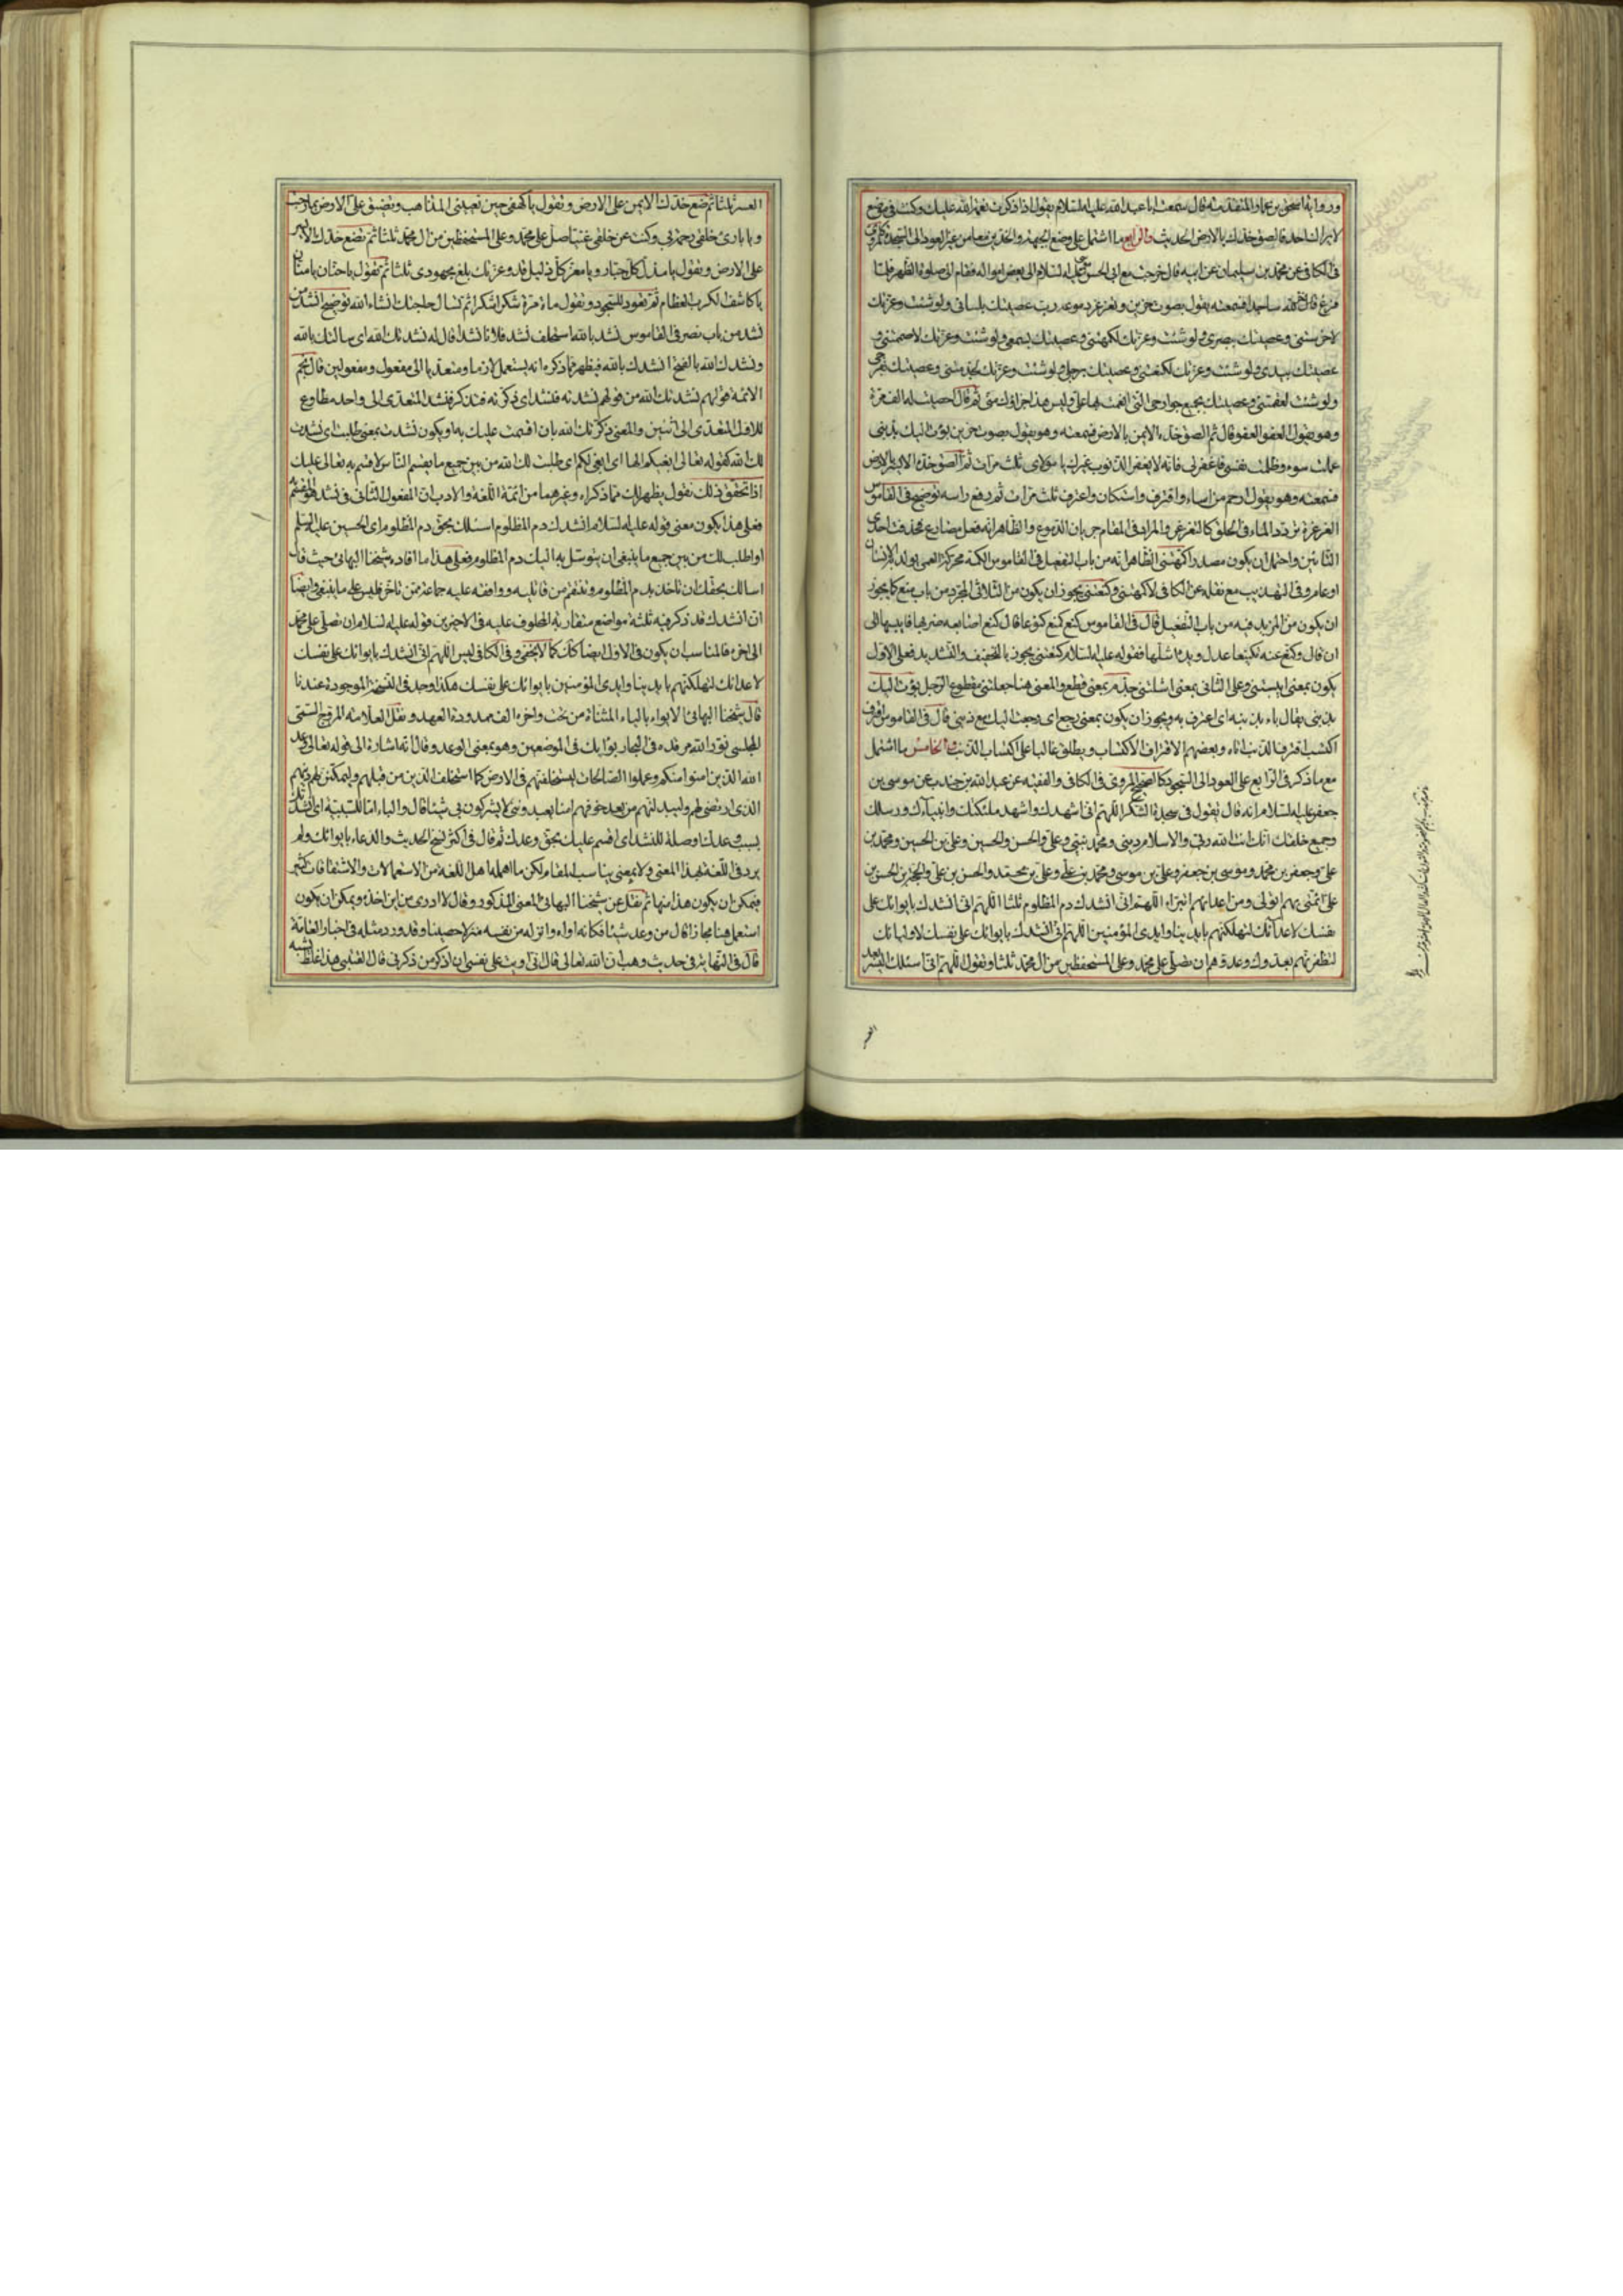 ورواية اسحق بن عمار المتقدمة قال سمعت ابا عبد الله عليه السلام يقول اذا ذكرت نعمة الله عليك وكنت في موضع
لا يراك احد فالصق خدك بالارض الحديث والرابع ما اشتمل على وضع الجبهة والخدين معا من غير العود الى السجدة كالمروي
في الكافي عن محمد بن سليمان عن ابيه قال خرجت مع ابي الحسن موسى عليه السلام الى بعض امواله فقام الى صلوة الظهر فلما
فرغ خر لله ساجدا فسمعته يقول بصوت حزين وتغرغر دموعه رب عصيتك بلساني ولو شئت وعزتك
لاخرستني وعصيتك ببصري ولو شئت وعزتك لكمهتني وعصيتك بسمعي ولو شئت وعزتك لاصممتني و
عصيتك بيدي ولو شئت وعزتك لكنعتني وعصيتك برجلي ولو شئت وعزتك لجذمتني وعصيتك بفرجي
ولو شئت لعقمتني وعصيتك بجميع جوارحي التي انعمت بها علي وليس هذا جزاؤك مني ثم قال احصيت له الف مرة
وهو يقول العفو العفو قال ثم الصق خده الايمن بالارض فسمعته وهو يقول بصوت حزين بؤت اليك بذنبي
عملت سوء وظلمت نفسي فاغفر لي فانه لا يغفر الذنوب غيرك يا مولاي ثلث مرات ثم الصق خده الايسر بالارض
فسمعته وهو يقول ارحم من اساء واقترف واستكان واعترف ثلث مرات ثم رفع راسه توضيح في القاموس
الغرغرة تردد الماء في الحلق كالتغرغر والمراد في المقام جريان الدموع والظاهر انه فعل مضارع بحذف احدى
التائين واحتمل ان يكون مصدرا كمهتني الظاهر انه من باب التفعيل في القاموس الكمه محركة العمى يولد به الانسان
او عام وفي التهذيب مع نقله عن الكافي لاكمهتني وكنعتني يجوز ان يكون من الثلاثي المجرد من باب منع كما يجوز
ان يكون من المزيد فيه من باب التفعيل قال في القاموس كنع كمنع كنوعا قال كنع اصابعه ضربها فايبسها الى
ان قال وكنع عنه تكنيعا عدل ويده اشلها فقوله عليه السلام كنعتني يجوز بالتخفيف والتشديد فعلى الاول
يكون بمعنى ايبستني وعلى الثاني بمعنى اشللتني جذم بمعنى قطع والمعنى هنا جعلتني مقطوع الرجل بؤت اليك
بذنبي يقال باء بذنبه اي اعترف به ويجوز ان يكون بمعنى رجع اي رجعت اليك مع ذنبي قال في القاموس اقترف
اكتسب اقترف الذنب اتاه وبعضهم الاقتراف الاكتساب ويطلق غالبا على اكتساب الذنب والخامس ما اشتمل
مع ما ذكر في الرابع على العود الى السجود كالصحيح المروي في الكافي والفقيه عن عبد الله بن جندب عن موسى بن
جعفر عليه السلام انه قال تقول في سجدة الشكر اللهم اني اشهدك واشهد ملئكتك وانبياءك ورسلك
وجميع خلقك انك انت الله ربي والاسلام ديني ومحمد نبيي وعلي والحسن والحسين وعلي بن الحسين ومحمد بن
علي وجعفر بن محمد وموسى بن جعفر وعلي بن موسى ومحمد بن علي وعلي بن محمد والحسن بن علي والحجة بن الحسن بن
علي ائمتي بهم اتولى ومن اعدائهم اتبرأ اللهم اني انشدك دم المظلوم ثلثا اللهم اني انشدك بايوائك على
نفسك لاعدائك لتهلكنهم بايدينا وايدي المؤمنين اللهم اني انشدك بايوائك على نفسك لاوليائك
لتظفرنهم بعدوك وعدوهم ان تصلي على محمد وعلى المستحفظين من آل محمد ثلثا وتقول اللهم اني اسئلك اليسر بعد
العسر ثلثا ثم ضع خدك الايمن على الارض وتقول يا كهفي حين تعييني المذاهب وتضيق على الارض بما رحبت
ويا بارئ خلقي رحمة بي وكنت عن خلقي غنيا صل على محمد وعلى المستحفظين من آل محمد ثلثا ثم تضع خدك الايسر
على الارض وتقول يا مذل كل جبار ويا معز كل ذليل قد وعزتك بلغ مجهودي ثلثا ثم تقول يا حنان يا منان
يا كاشف الكرب العظام ثم تعود للسجود وتقول مائة مرة شكرا شكرا ثم تسال حاجتك انشاء الله توضيح انشدك من
نشد من باب نصر في القاموس نشد بالله استحلف نشد فلانا نشدا قال له نشدتك الله اي سالتك بالله
ونشدك الله بالفتح انشدك بالله فيظهر مما ذكره انه يستعمل لازما ومتعديا الى مفعول ومفعولين قال نجم
الائمة قولهم نشدتك الله من قولهم نشدته فنشد اي ذكرته فتذكر فنشد المتعدي الى واحد مطاوع
للاول المتعدي الى اثنين والمعنى ذكرتك الله بان اقسمت عليك به او يكون نشدت بمعنى طلبت اي نشدت
لك الله كقوله تعالى ابغيكم الها اي ابغي لكم اي طلبت لك الله من بين جميع ما يقسم الناس لاقسم به تعالى عليك
اذا تحقق ذلك نقول يظهر لك مما ذكراه وغيرهما من ائمة اللغة والادب ان المفعول الثاني في نشد هو المقسم
فعلى هذا يكون معنى قوله عليه السلام انشدك دم المظلوم اسئلك بحق دم المظلوم اي الحسين عليه السلم
او اطلب لك من بين جميع ما ينبغي ان يتوسل به اليك دم المظلوم فعلى هذا ما افاده شيخنا البهائي حيث قال
اسالك بحقك ان تاخذ بدم المظلوم وتنتقم من قاتليه ووافقه عليه جماعة ممن تاخر فليس على ما ينبغي وايضا
ان انشدك قد ذكر فيه ثلثة مواضع متقاربة المطلوب عليه في الاخيرين قوله عليه السلام ان تصلي على محمد
الى اخره فالمناسب ان يكون في الاول ايضا كذلك كما لا يخفى وفي الكافي ليس اللهم اني انشدك بايوائك على نفسك
لاعدائك لتهلكنهم بايدينا وايدي المؤمنين بايوائك على نفسك هكذا وجد في النسخ الموجودة عندنا
قال شيخنا البهائي الايواء بالياء المثناة من تحت واخره الف ممدودة العهد ونقل العلامة المروج السمي
المجلسي نور الله مرقده في البحار بوايك في الموضعين وهو بمعنى الوعد وقال انه اشارة الى قوله تعالى وعد
الله الذين امنوا منكم وعملوا الصالحات ليستخلفنهم في الارض كما استخلف الذين من قبلهم وليمكنن لهم دينهم
الذي ارتضى لهم وليبدلنهم من بعد خوفهم امنا يعبدونني لا يشركون بي شيئا قال والباء اما للسببية اي انشدك
بسبب وعدك او صلة للنشد اي اقسم عليك بحق وعدك ثم قال في اكثر نسخ الحديث والدعاء بايوائك ولم
يرد في اللغة بهذا المعنى ولا بمعنى يناسب المقام لكن ما اهمله اهل اللغة من الاستعمالات والاشتقاقات كثير
فيمكن ان يكون هذا منها ثم نقل عن شيخنا البهائي المعنى المذكور وقال لا ادري من اين اخذه ويمكن ان يكون
استعمل هنا مجازا قال من وعد شيئا فكانه اواه وانزله من نفسه منزلا حصينا وقد ورد مثله في اخبار العامة
قال في النهاية في حديث وهب ان الله تعالى قال اني اويت على نفسي ان اذكر من ذكرني قال القتيبي هذا غلط